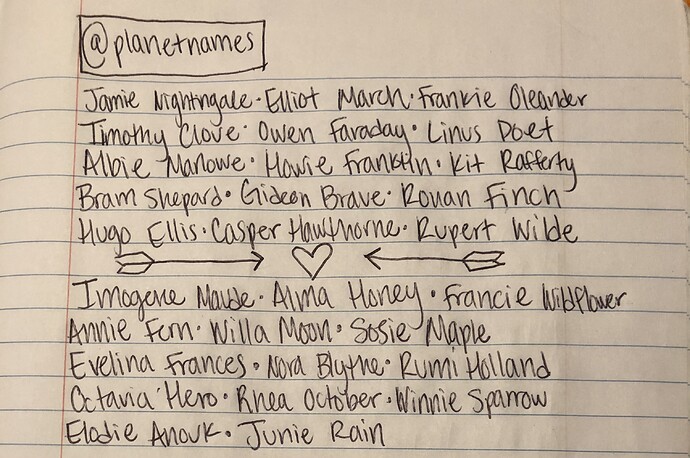 @planetnames
Jamie Nightingale · Elliot March · Frankie Oleander
Timothy Clove · Owen Faraday · Linus Poet
Albie Marlowe · Howie Franklin · Kit Rafferty
Bram Shepard · Gideon Brave · Rowan Finch
Hugo Ellis · Casper Hawthorne · Rupert Wilde
Imogene Maude · Alma Honey · Francie Wildflower
Annie Fern · Willa Moon · Sosie Maple
Evelina Frances · Nora Blythe · Rumi Holland
Octavia Hero · Rhea October · Winnie Sparrow
Elodie Anouk · Junie Rain